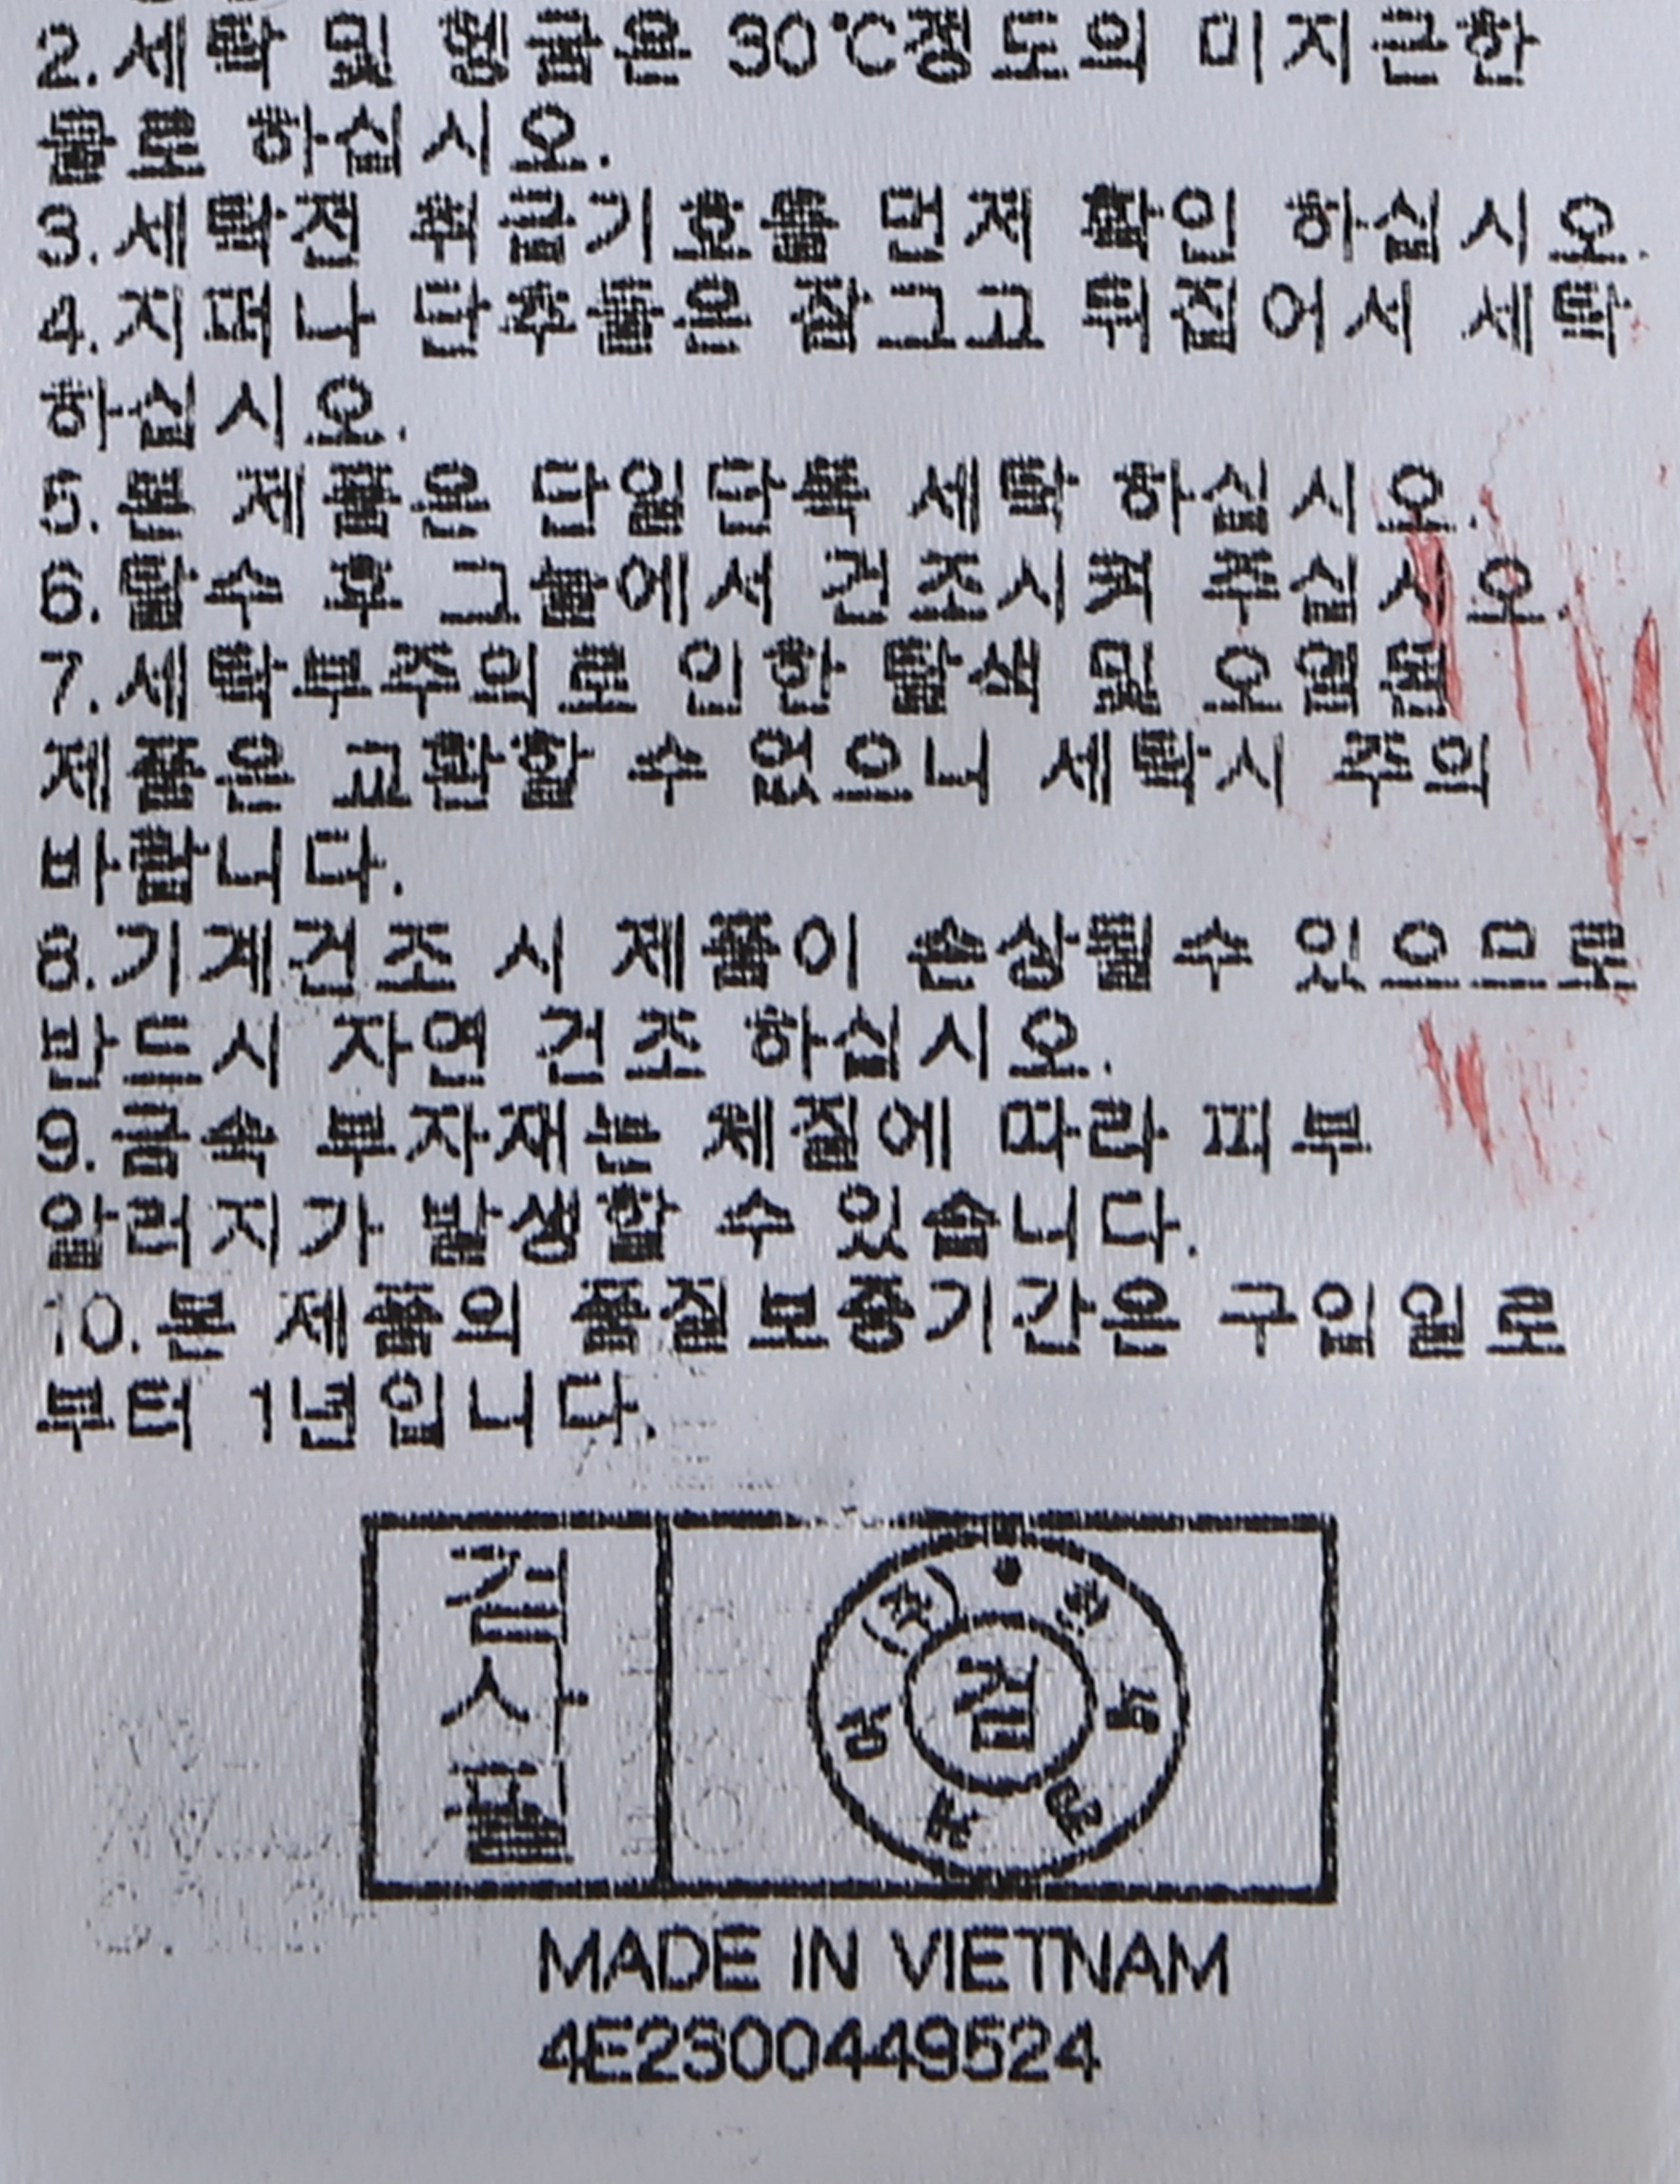 2.세탁 및 헹굼은 30℃정도의 미지근한
물로 하십시오.
3.세탁전 취급기호를 먼저 확인 하십시오.
4.지퍼나 단추들은 잠그고 뒤집어서 세탁
하십시오.
5.본 제품은 단일단독 세탁 하십시오.
6.탈수 후 그늘에서 건조시켜 주십시오.
7.세탁부주의로 인한 탈색 및 오염된
제품은 교환할 수 없으니 세탁시 주의
바랍니다.
8.기계건조 시 제품이 손상될수 있으므로
반드시 자연 건조 하십시오.
9.금속 부자재는 체질에 따라 피부
알러지가 발생할 수 있습니다.
10.본 제품의 품질보증기간은 구입일로
부터 1년입니다.
검사필
검
MADE IN VIETNAM
4E2300449524